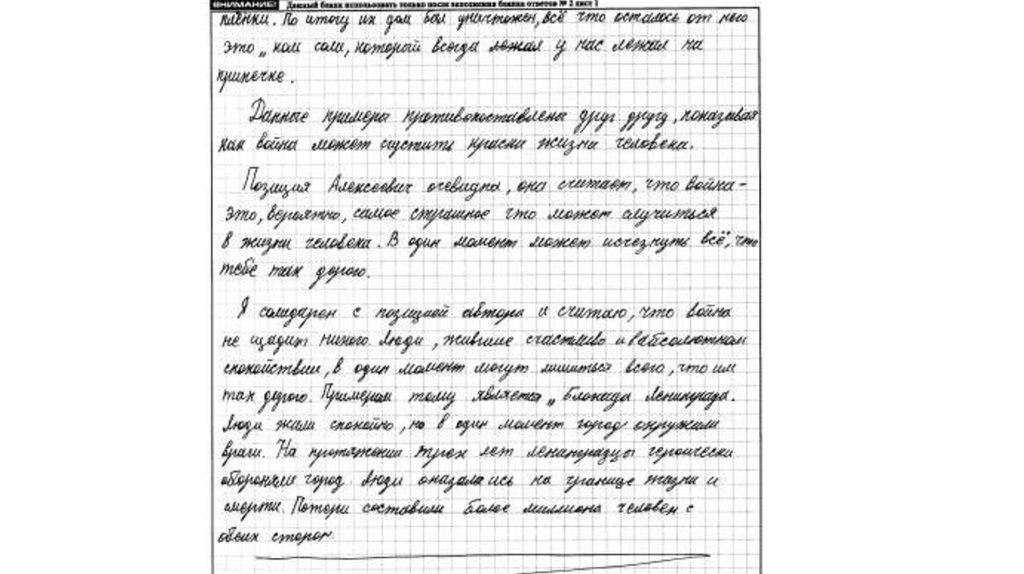 ВНИМАНИЕ! Данный бланк использовать только после заполнения бланка ответов № 2 лист 1
плёнки. По итогу их дом был уничтожен, всё что осталось от него
это „ ком соли, который всегда лежал у нас лежал на
припечке.
Данные примеры противопоставлены друг другу, показывая
как война может сгустить краски жизни человека.
Позиция Алексеевич очевидна, она считает, что война –
это, вероятно, самое страшное что может случиться
в жизни человека. В один момент может исчезнуть всё, что
тебе так дорого.
Я солидарен с позицией автора и считаю, что война
не щадит никого. Люди, жившие счастливо и в абсолютном
спокойствии, в один момент могут лишиться всего, что им
так дорого. Примером тому является „ Блокада Ленинграда.
Люди жили спокойно, но в один момент город окружили
враги. На протяжении трех лет ленинградцы героически
обороняли город. Люди оказались на границе жизни и
смерти. Потери составили более миллиона человек с
обеих сторон.